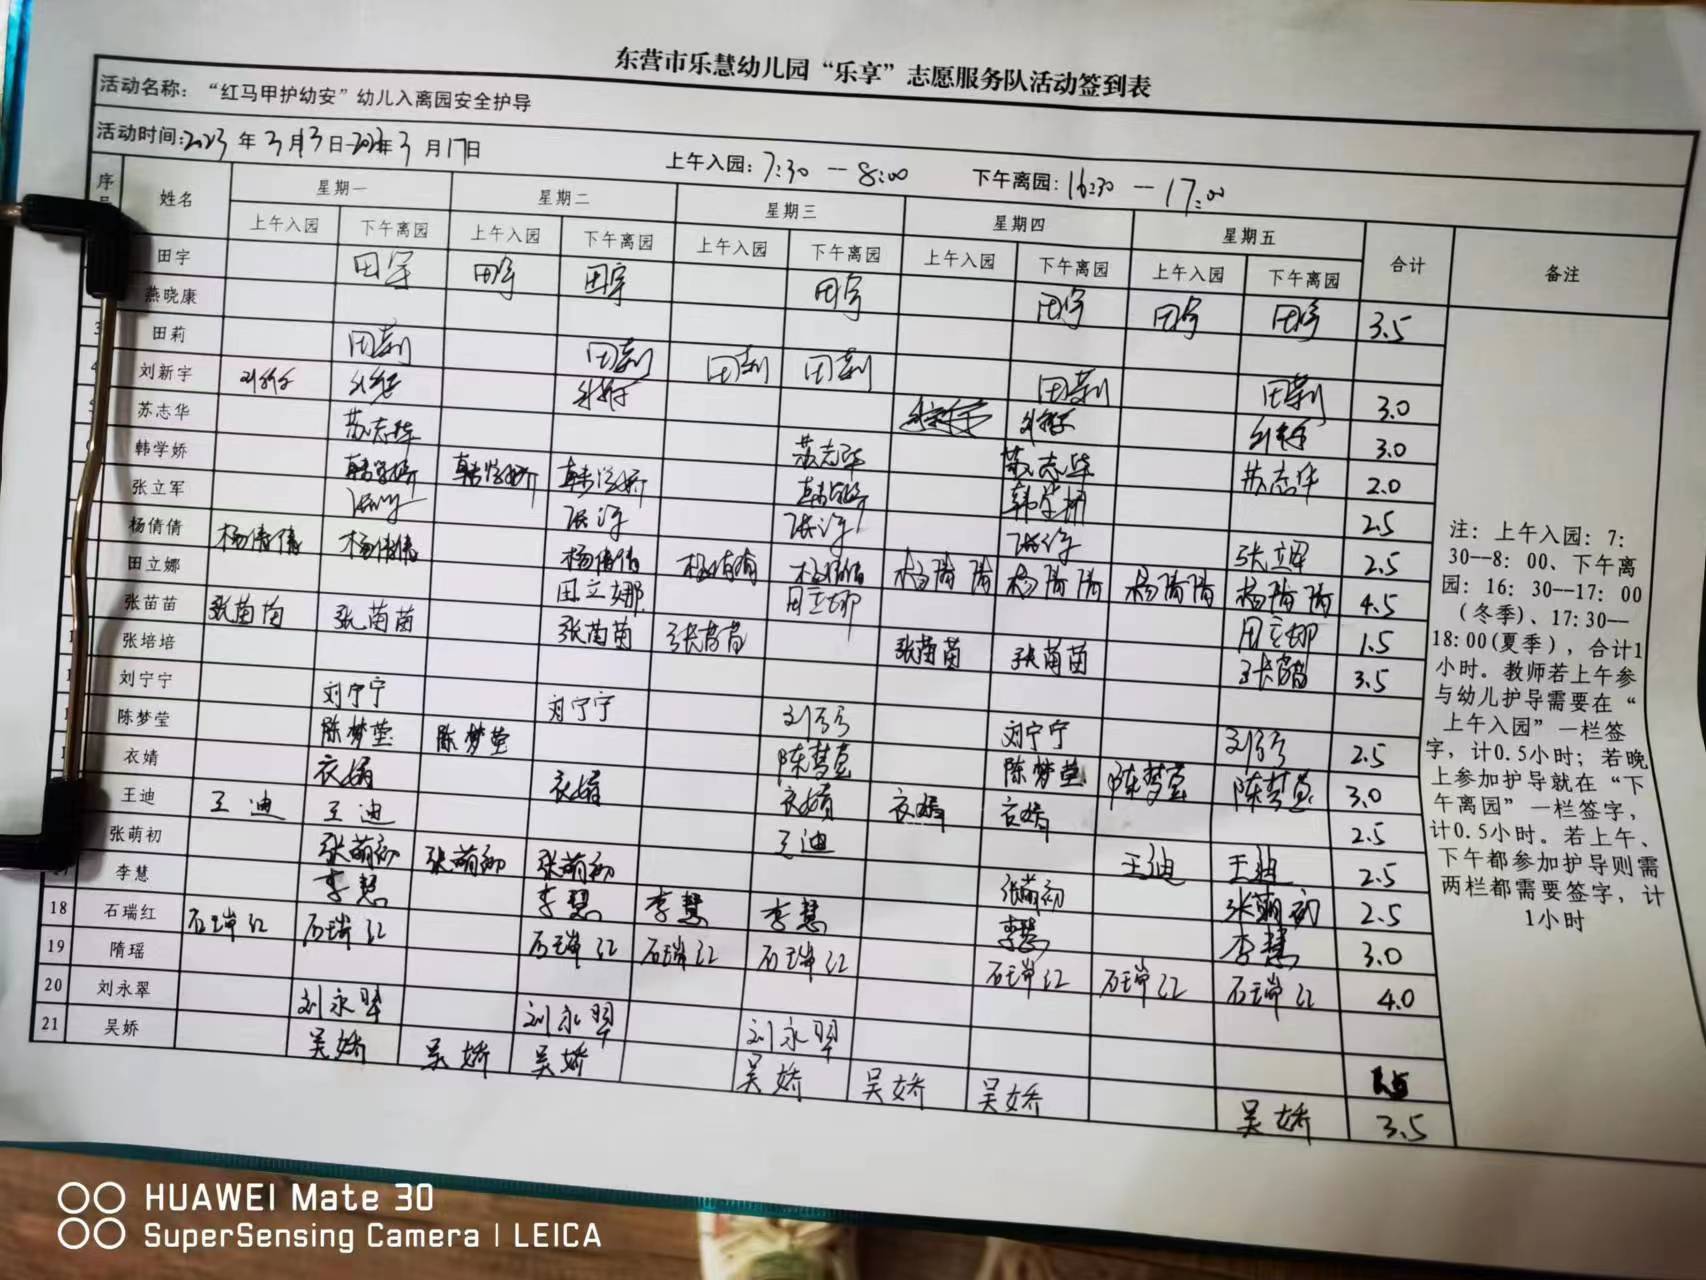 东营市乐慧幼儿园“乐享”志愿服务队活动签到表
活动名称：“红马甲护幼安”幼儿入离园安全护导
活动时间:2023年3月13日-2023年3月17日 上午入园:7:30--8:00 下午离园:16:30--17:00
序 姓名 星期一 星期二 星期三 星期四 星期五 合计 备注
上午入园 下午离园 上午入园 下午离园 上午入园 下午离园 上午入园 下午离园 上午入园 下午离园
田宇 田宇 田宇 田宇 田宇 田宇 田宇 田宇 3.5
燕晓康
3 田莉 田莉 田莉 田莉 田莉 田莉 田莉 3.0
4 刘新宇 刘新宇 刘新宇 刘新宇 刘新宇 刘新宇 刘新宇 3.0
苏志华 苏志华 苏志华 苏志华 苏志华 2.0
韩学娇 韩学娇 韩学娇 韩学娇 韩学娇 韩学娇 2.5
张立军 张立军 张立军 张立军 张立军 张立军 2.5
杨倩倩 杨倩倩 杨倩倩 杨倩倩 杨倩倩 杨倩倩 杨倩倩 杨倩倩 杨倩倩 杨倩倩 4.5
田立娜 田立娜 田立娜 田立娜 1.5
张苗苗 张苗苗 张苗苗 张苗苗 张苗苗 张苗苗 张苗苗 张苗苗 3.5
张培培
刘宁宁 刘宁宁 刘宁宁 刘宁宁 刘宁宁 刘宁宁 2.5
陈梦莹 陈梦莹 陈梦莹 陈梦莹 陈梦莹 陈梦莹 陈梦莹 3.0
衣婧 衣婧 衣婧 衣婧 衣婧 衣婧 2.5
王迪 王迪 王迪 王迪 王迪 王迪 2.5
张萌初 张萌初 张萌初 张萌初 张萌初 张萌初 2.5
李慧 李慧 李慧 李慧 李慧 李慧 李慧 3.0
18 石瑞红 石瑞红 石瑞红 石瑞红 石瑞红 石瑞红 石瑞红 石瑞红 石瑞红 4.0
19 隋瑶
20 刘永翠 刘永翠 刘永翠 刘永翠 1.5
21 吴娇 吴娇 吴娇 吴娇 吴娇 吴娇 吴娇 吴娇 3.5
注：上午入园：7：
30--8：00、下午离
园：16：30--17：00
（冬季）、17:30--
18:00(夏季），合计1
小时。教师若上午参
与幼儿护导需要在“
上午入园”一栏签
字，计0.5小时；若晚
上参加护导就在“下
午离园”一栏签字，
计0.5小时。若上午、
下午都参加护导则需
两栏都需要签字，计
1小时
HUAWEI Mate 30
SuperSensing Camera | LEICA